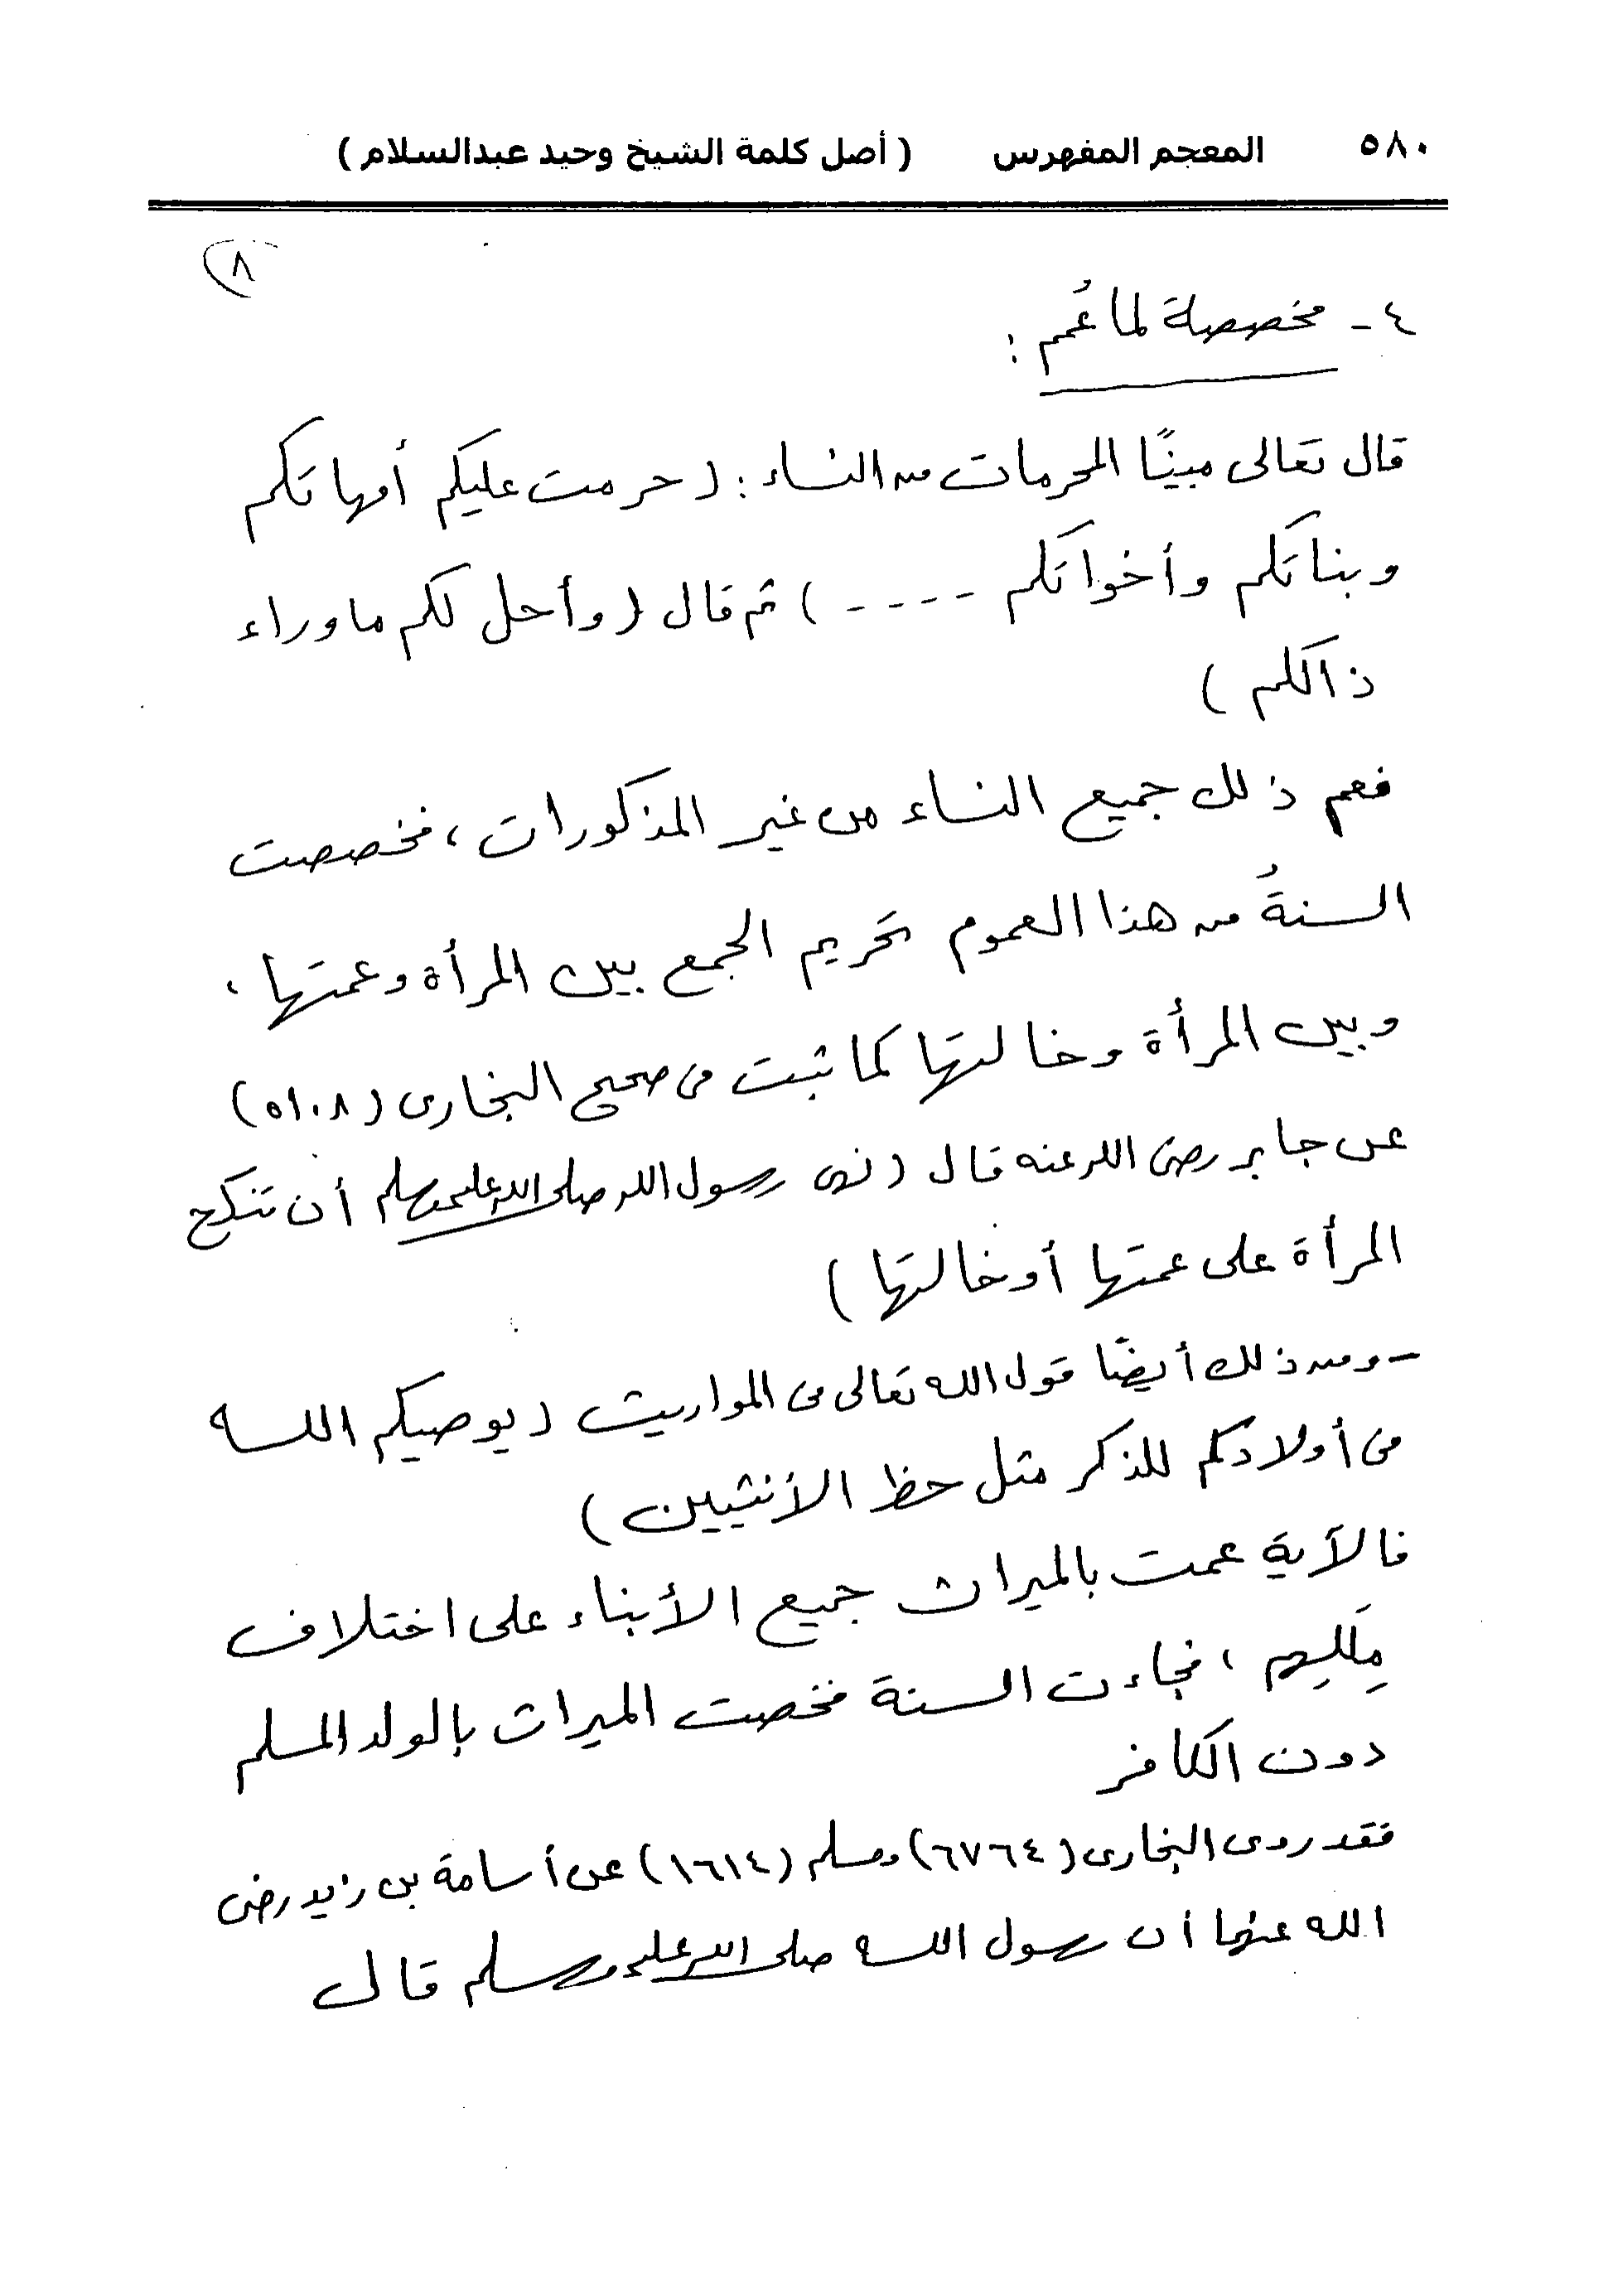 ٥٨٠ المعجم المفهرس ( أصل كلمة الشيخ وحيد عبدالسلام )
٨
٤ - مخصصة لما عُمم :
قال تعالى مبينًا المحرمات من النساء : ( حرمت عليكم أمهاتكم
وبناتكم وأخواتكم - - - - ) ثم قال ( وأحل لكم ما وراء
ذالكم )
فعم ذلك جميع النساء من غير المذكورات ، فخصصت
السنةُ من هذا العموم تحريم الجمع بين المرأة وعمتها ،
وبين المرأة وخالتها كما ثبت في صحيح البخاري ( ٥١٠٨ )
عن جابر رضي الله عنه قال ( نهى رسول الله صلى الله عليه وسلم أن تنكح
المرأة على عمتها أو خالتها )
- ومن ذلك أيضًا قول الله تعالى في المواريث ( يوصيكم الله
في أولادكم للذكر مثل حظ الأنثيين )
فالآية عمت بالميراث جميع الأبناء على اختلاف
مِلَلِهم ، فجاءت السنة فخصت الميراث بالولد المسلم
دون الكافر
فقد روى البخاري ( ٦٧٦٤ ) ومسلم ( ١٦١٤ ) عن أسامة بن زيد رضي
الله عنهما أن رسول الله صلى الله عليه وسلم قال